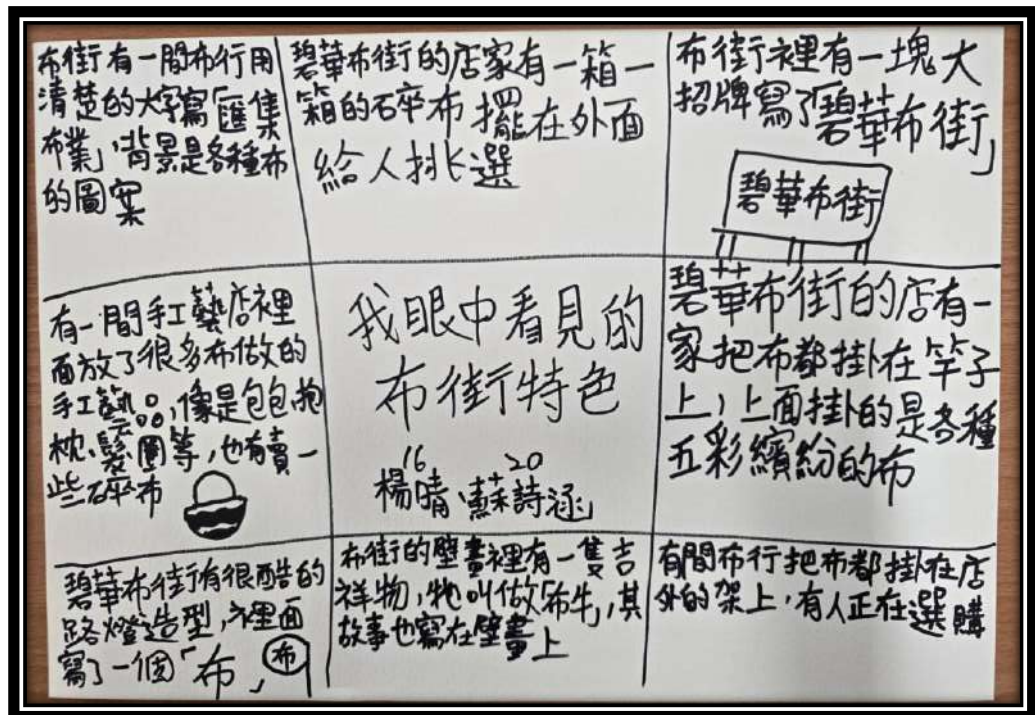 布街有一間布行用
清楚的大字寫「匯集
布業」,背景是各種布
的圖案
碧華布街的店家有一箱一
箱的碎布擺在外面
給人挑選
布街裡有一塊大
招牌寫了「碧華布街」
碧華布街
有一間手工藝店裡
面放了很多布做的
手工藝品,像是包包、抱
枕、髮圈等,也有賣一
些碎布
我眼中看見的
布街特色
16 20
楊晴、蘇詩涵
碧華布街的店有一
家把布都掛在竿子
上,上面掛的是各種
五彩繽紛的布
碧華布街有很酷的
路燈造型,裡面
寫了一個「布」
布
布街的壁畫裡有一隻吉
祥物,牠叫做「布牛」,其
故事也寫在壁畫上
有間布行把布都掛在店
外的架上,有人正在選購